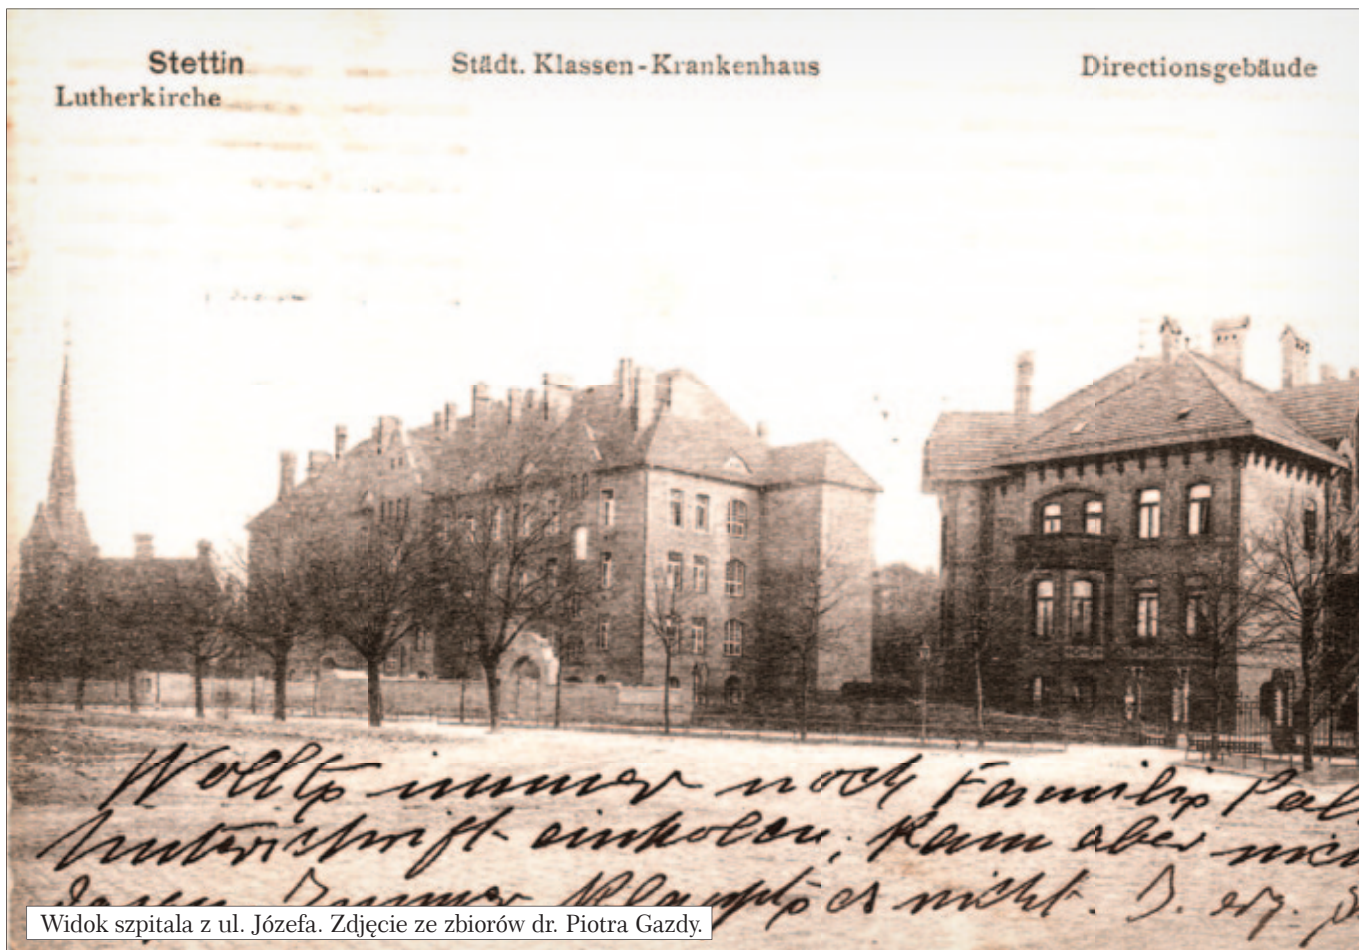 Stettin
Lutherkirche
Städt. Klassen-Krankenhaus
Directionsgebäude
Wollte immer noch Familie
Unterschrift einholen, kam aber
Immer klappte es nicht.
Widok szpitala z ul. Józefa. Zdjęcie ze zbiorów dr. Piotra Gazdy.